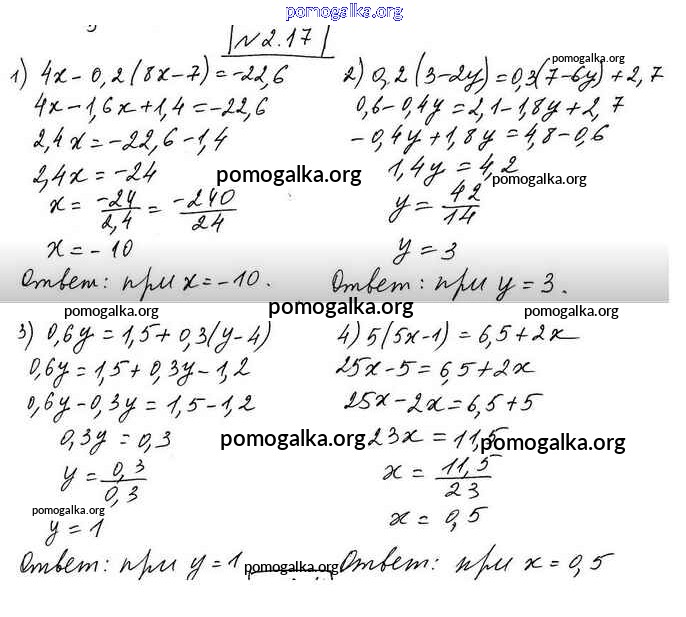 pomogalka.org
№2.17
1) 4x - 0,2(8x-7) = -22,6
4x - 1,6x + 1,4 = -22,6
2,4x = -22,6 - 1,4
2,4x = -24
pomogalka.org
x = -24/2,4 = -240/24
x = -10
Ответ: при x = -10.
2) 0,2(3-2y) = 0,3(7-6y) + 2,7
pomogalka.org
0,6 - 0,4y = 2,1 - 1,8y + 2,7
-0,4y + 1,8y = 4,8 - 0,6
1,4y = 4,2
pomogalka.org
y = 42/14
y = 3
Ответ: при y = 3.
pomogalka.org
pomogalka.org
pomogalka.org
3) 0,6y = 1,5 + 0,3(y-4)
0,6y = 1,5 + 0,3y - 1,2
0,6y - 0,3y = 1,5 - 1,2
0,3y = 0,3
pomogalka.org
y = 0,3/0,3
pomogalka.org
y = 1
Ответ: при y = 1
pomogalka.org
4) 5(5x-1) = 6,5 + 2x
25x - 5 = 6,5 + 2x
25x - 2x = 6,5 + 5
23x = 11,5
pomogalka.org
x = 11,5/23
x = 0,5
Ответ: при x = 0,5